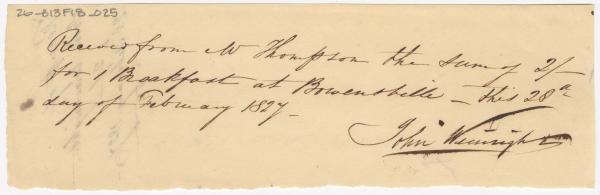 26-B13F18-025
Received from Mr Thompson the sum of 2/-
for 1 Breakfast at Bowensville - this 28th
day of February 1827 -
John